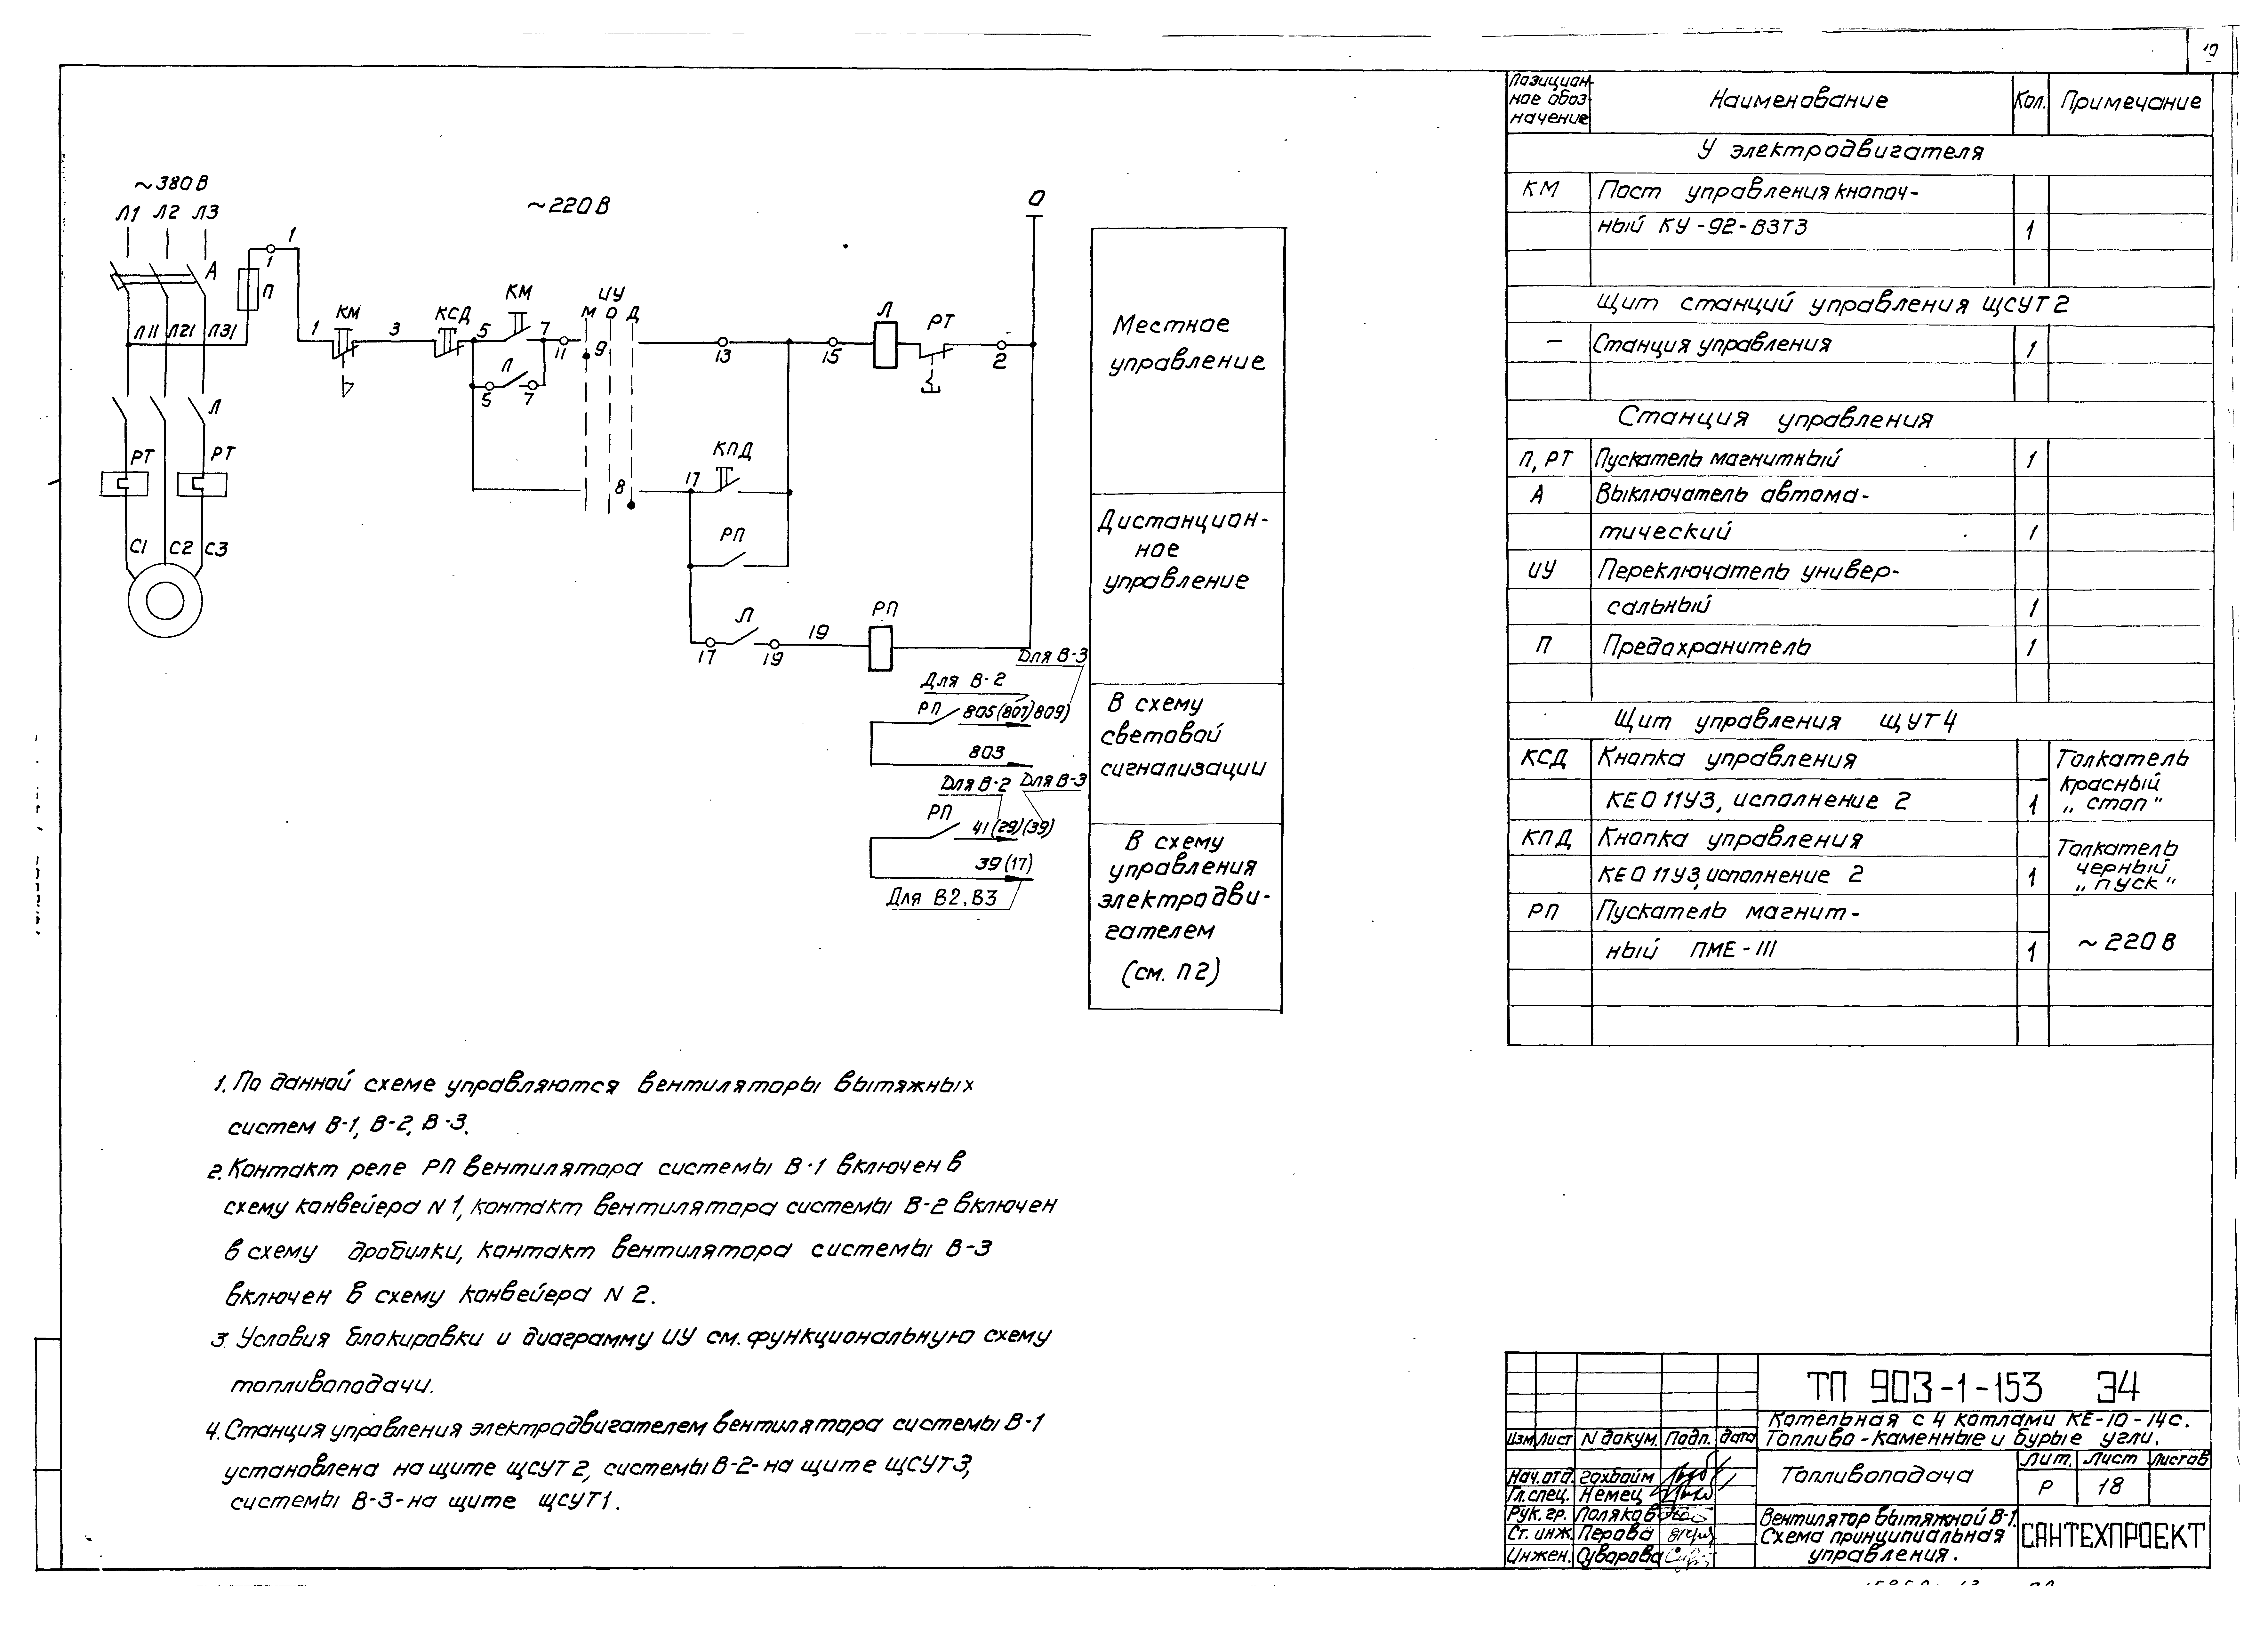 19
~380В
Л1 Л2 Л3
А
П
1
1
Л11 Л21 Л31
Л
РТ РТ
С1 С2 С3
~220В
0
1
КМ
3
КСД
5
КМ
7
11
ИУ
М О Д
9
Л
5 7
13
15
Л
РТ
2
8
17
КПД
РП
Л
17 19
19
РП
Для В-3
Для В-2
РП 805(807)809)
803
Для В-2 Для В-3
РП 41(29)(39)
39(17)
Для В2, В3
Местное
управление
Дистанцион-
ное
управление
В схему
световой
сигнализации
В схему
управления
электродви-
гателем
(см. П2)
Позицион-
ное обоз-
начение
Наименование
Кол.
Примечание
У электродвигателя
КМ Пост управления кнопоч-
ный КУ-92-В3Т3 1
Щит станций управления ЩСУТ2
— Станция управления 1
Станция управления
П, РТ Пускатель магнитный 1
А Выключатель автома-
тический 1
ИУ Переключатель универ-
сальный 1
П Предохранитель 1
Щит управления ЩУТ4
КСД Кнопка управления
КЕ011У3, исполнение 2 1
Толкатель
красный
„стоп“
КПД Кнопка управления
КЕ011У3, исполнение 2 1
Толкатель
черный
„пуск“
РП Пускатель магнит-
ный ПМЕ-111 1
~220В
1. По данной схеме управляются вентиляторы вытяжных
систем В-1, В-2, В-3.
2. Контакт реле РП вентилятора системы В-1 включен в
схему конвейера N1, контакт вентилятора системы В-2 включен
в схему дробилки, контакт вентилятора системы В-3
включен в схему конвейера N 2.
3. Условия блокировки и диаграмму ИУ см. функциональную схему
топливоподачи.
4. Станция управления электродвигателем вентилятора системы В-1
установлена на щите ЩСУТ2, системы В-2-на щите ЩСУТ3,
системы В-3-на щите ЩСУТ1.
ТП 903-1-153 Э4
Котельная с 4 котлами КЕ-10-14с.
Топливо-каменные и бурые угли.
Изм Лист N докум. Подп. дата
Нач.отд. Гохбойм
Гл.спец. Немец
Рук.гр. Поляков
Ст.инж. Перова
Инжен. Суворова
Топливоподача
Лит. Лист Листов
Р 18
Вентилятор вытяжной В-1.
Схема принципиальная
управления.
САНТЕХПРОЕКТ